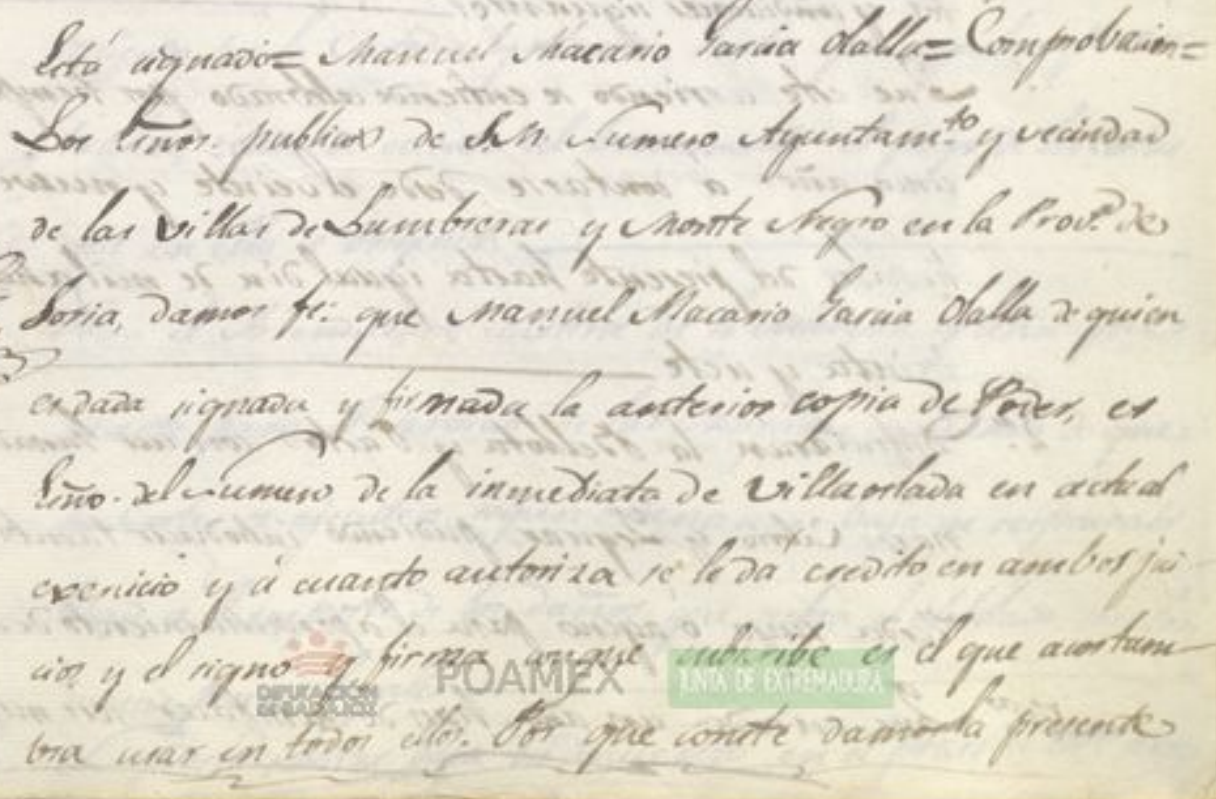 Está signado= Manuel Macario Garcia Olalla= Comprobacion=
Los Essnos. publicos de S.M. Numero Ayuntam.to y vecindad
de las villas de Lumbreras y Monte Negro en la Prov.a de
Soria, damos fé: que Manuel Macario Garcia Olalla de quien
es dada signada y firmada la anterior copia de Poder, es
Esno. del Numero de la inmediata de Villaoslada en actual
exercicio y á cuanto autoriza se le da credito en ambos jui
cios y el signo y firma con que subscribe es el que acostum
bra usar en todos ellos. Por que conste damos la presente
DIPUTACIÓN
DE BADAJOZ
POAMEX
JUNTA DE EXTREMADURA